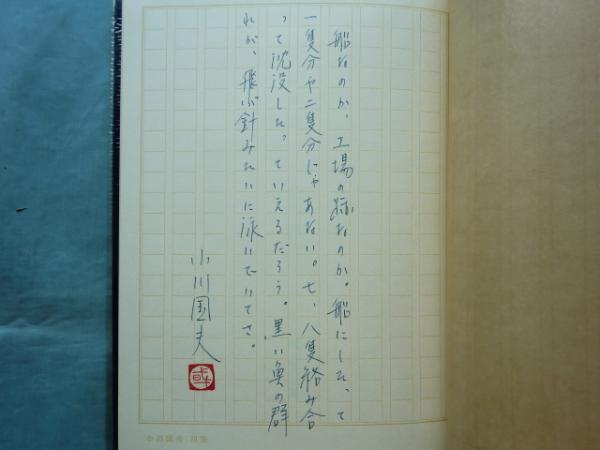 船なのか、工場の跡なのか。船にしたって
一隻分や二隻分じゃあない。七、八隻絡み合
って沈没した、っていえるだろう。黒い魚の群
れが、飛ぶ針みたいに泳いでいてさ。
小川国夫
小川國夫 用箋